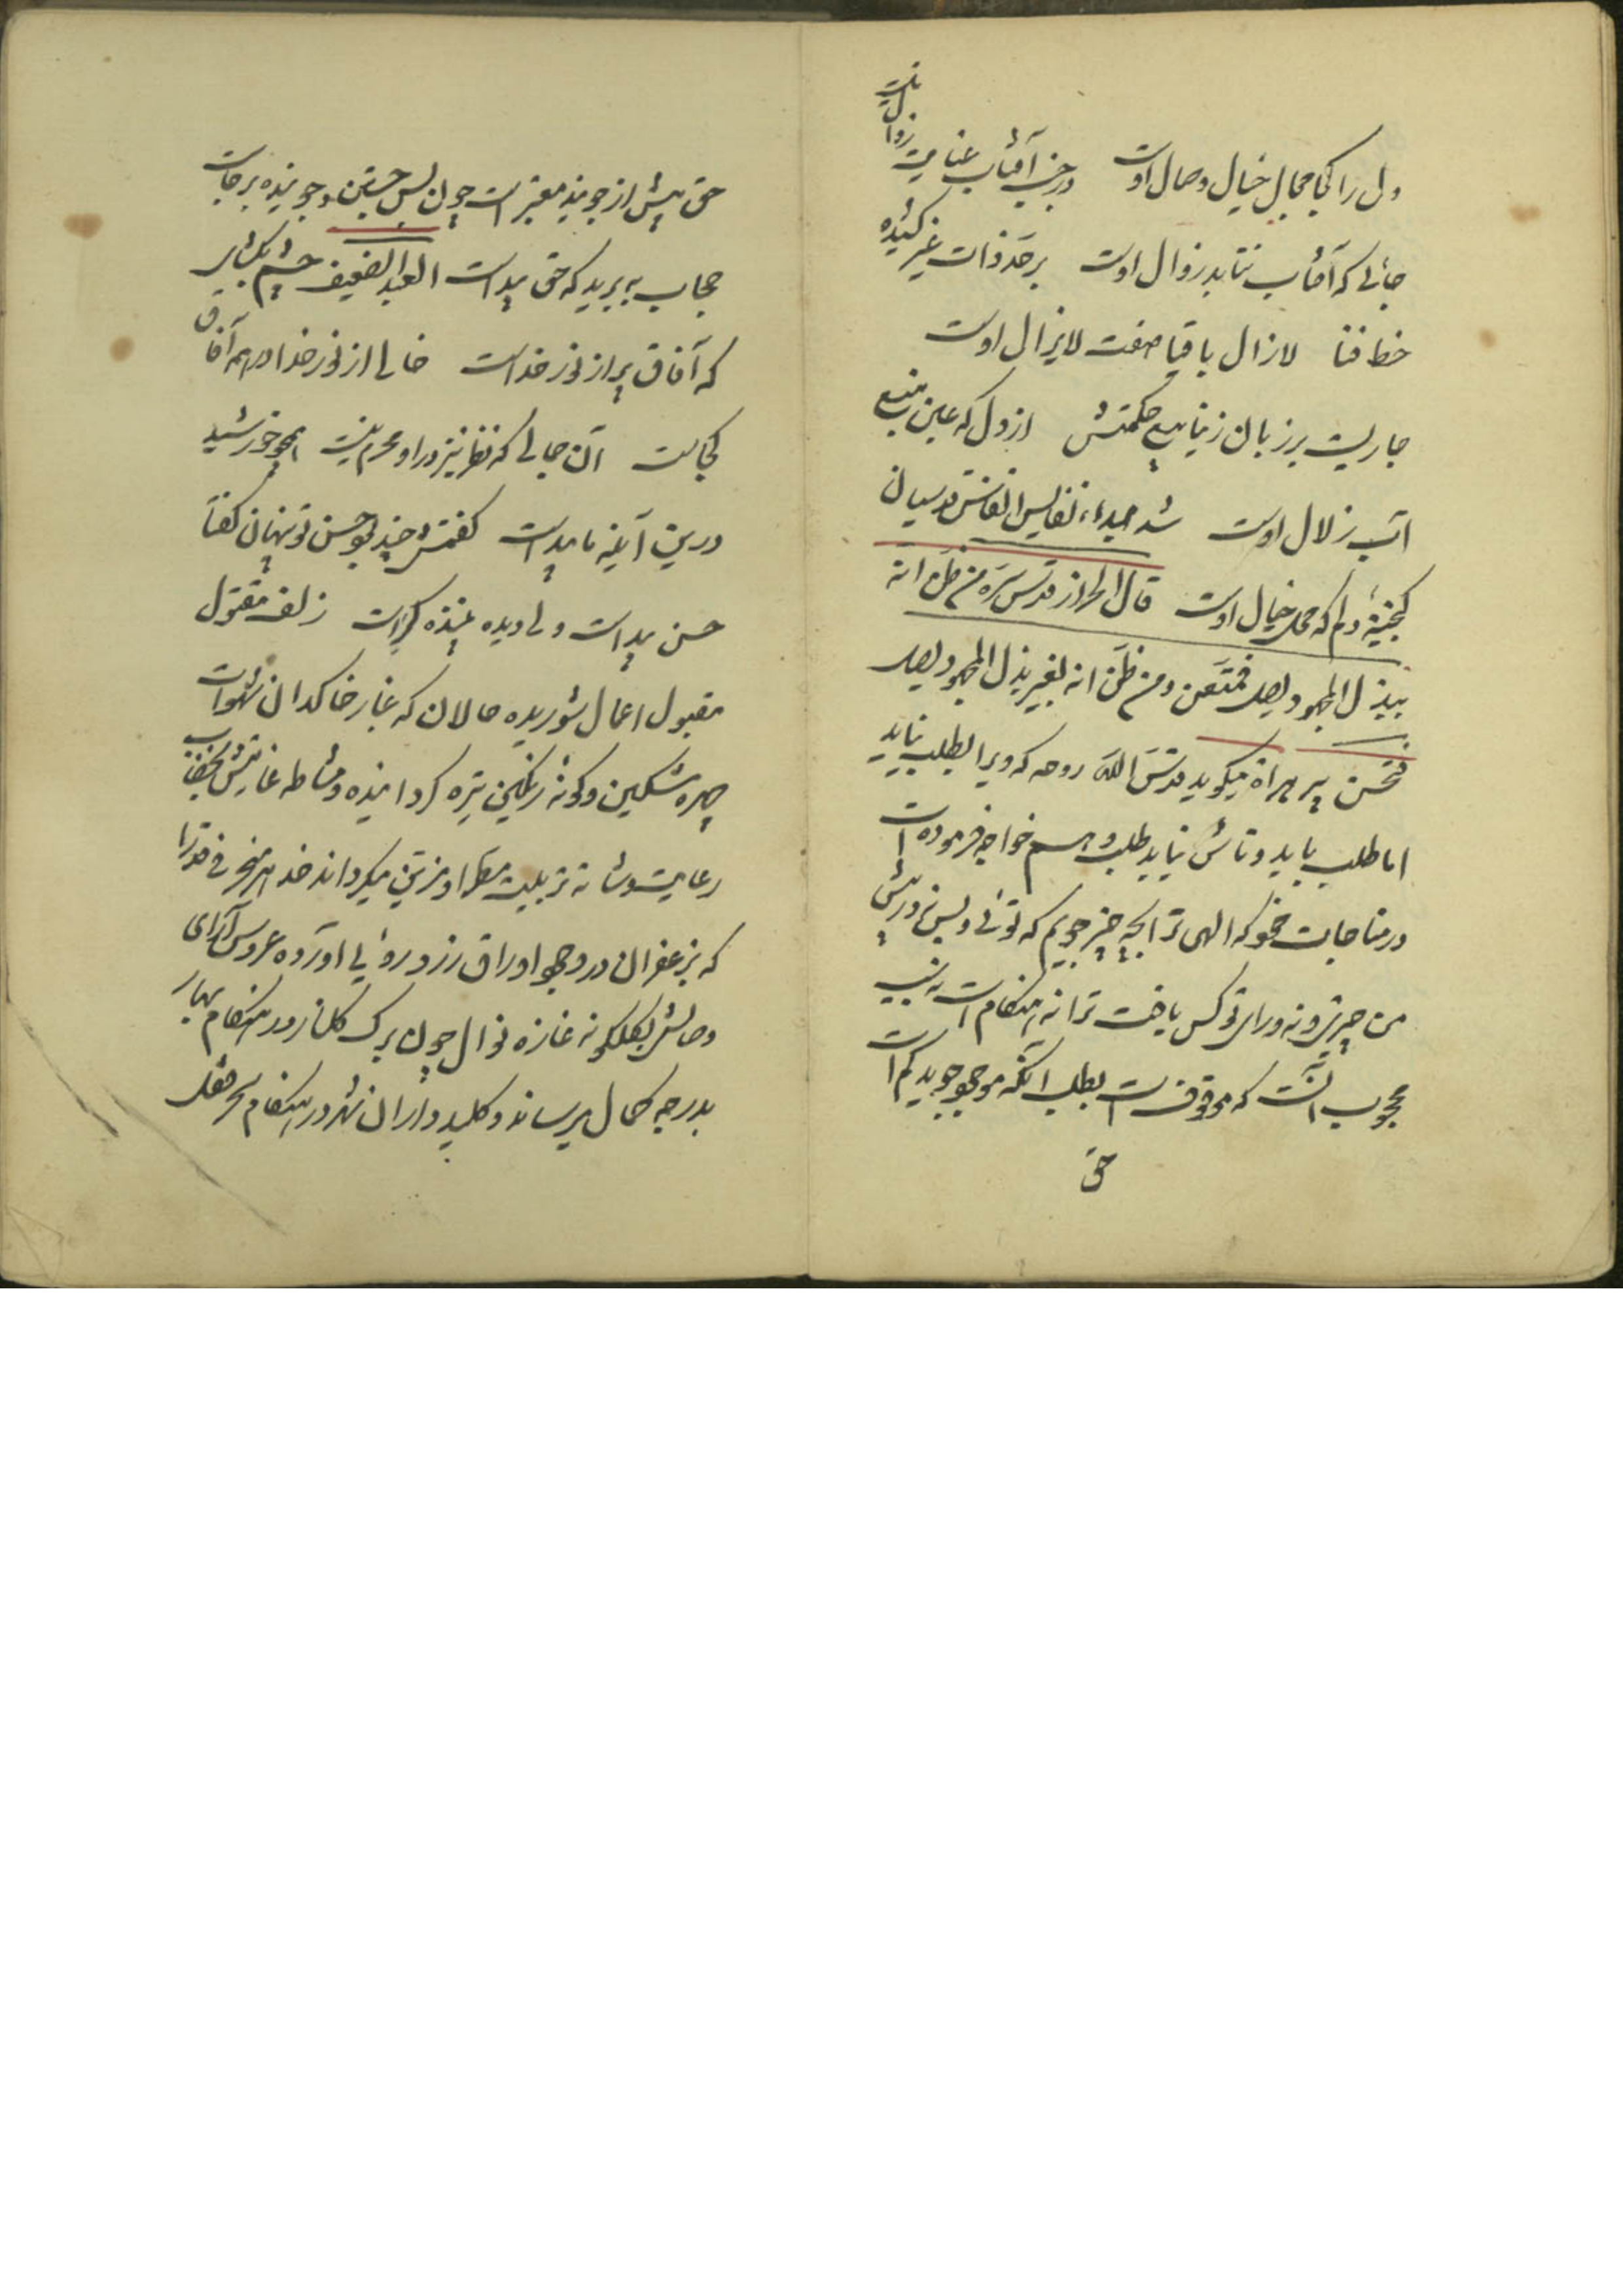 ولی را کجا مجال خیال وصال اوست در جنب آفتاب عنایت زوال نیست
جائی که آفتاب نتابد زوال اوست بر حد ذات غیر کشیده
خط فنا لازال باقیا صفت لایزال اوست
جاریست بر زبان ز ینابیع حکمتش از دل که عین منبع
آب زلال اوست شد صید نفایس انفاس قدسیان
گنجینهٔ دلم که محل خیال اوست قال الخراز قدس سره من ظن انه
ببذل المجهود یصل فمتعن ومن ظن انه بغیر بذل المجهود یصل
فمتمن پیر هراة میگوید قدس الله روحه که ویرا بطلب نیابند
اما طلب باید و تاش نیابد طلب و هم خواجه فرموده است
در مناجات خود که الهی ترا بچه چیز جویم که توئی و بس نه در پیش
من چیزی و نه ورای تو کس یافت ترا نه هنگام است نه سبب
محجوب آنست که موقوفست بطلب آنکه موجود جوید گم است
حق
حق پیش از جوینده معتبر است چون پس جستن و جوینده برجاست
حجاب ببرید که حق پیداست العبد الضعیف چشم بگشای
که آفاق پر از نور خداست خالی از نور خدا در همه آفاق
کجاست آن جمالی که نظر نیز در او محرم نیست همچو خورشید
درین آینه ها پیداست گفتمش چند بود حسن تو پنهان گفتا
حسن پیداست ولی دیده بیننده کراست زلف مفتول
مقبول اعمال شوریده حالان که غبار خاکدان شهوات
چهره مشکین و گونه رنگین تیره گردانیده و مشاطه عنایتش بخضاب
رعایت و شانه تربیت مطرا و مزین میگرداند خد
که بزعفران درد همچو اوراق رز زرد روئی آورده عروس آرای
وصالش بگلگونه غازه نوال چون برگ گلنار در هنگام بهار
بدرجه کمال میرساند و کلید داران شهر در هنگام